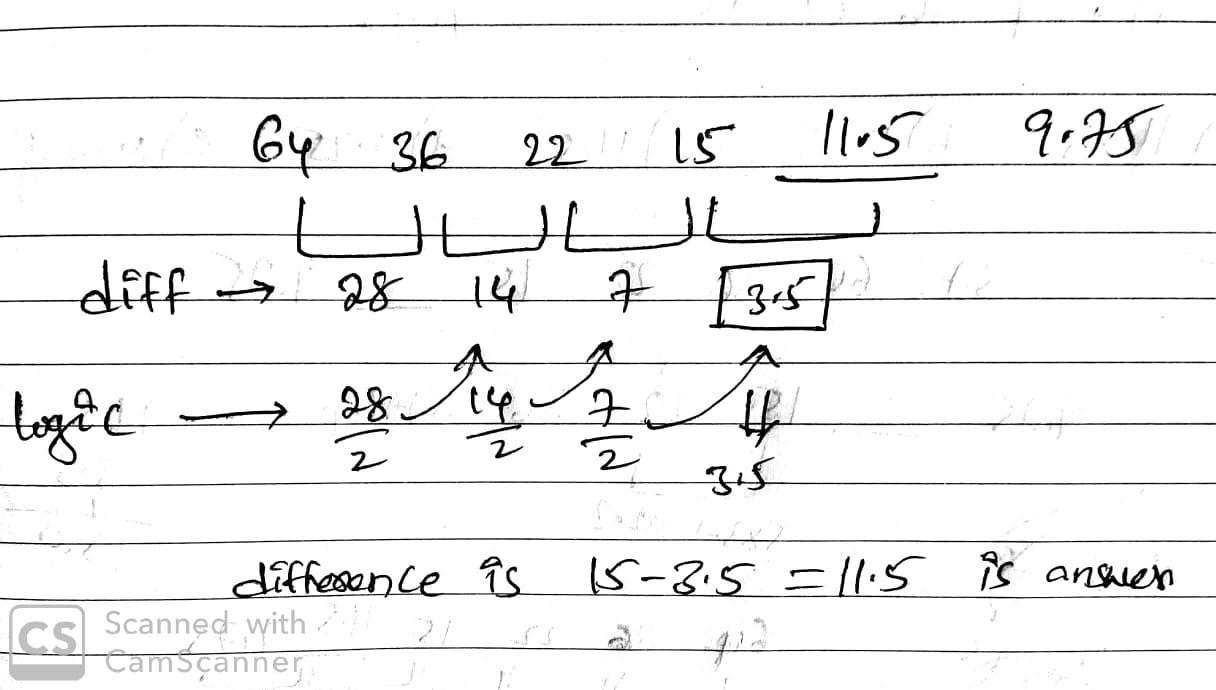 64 36 22 15 11.5 9.75
diff → 28 14 7 3.5
logic → 28/2 14/2 7/2 3.5
difference is 15-3.5 = 11.5 is answer
CS Scanned with
CamScanner